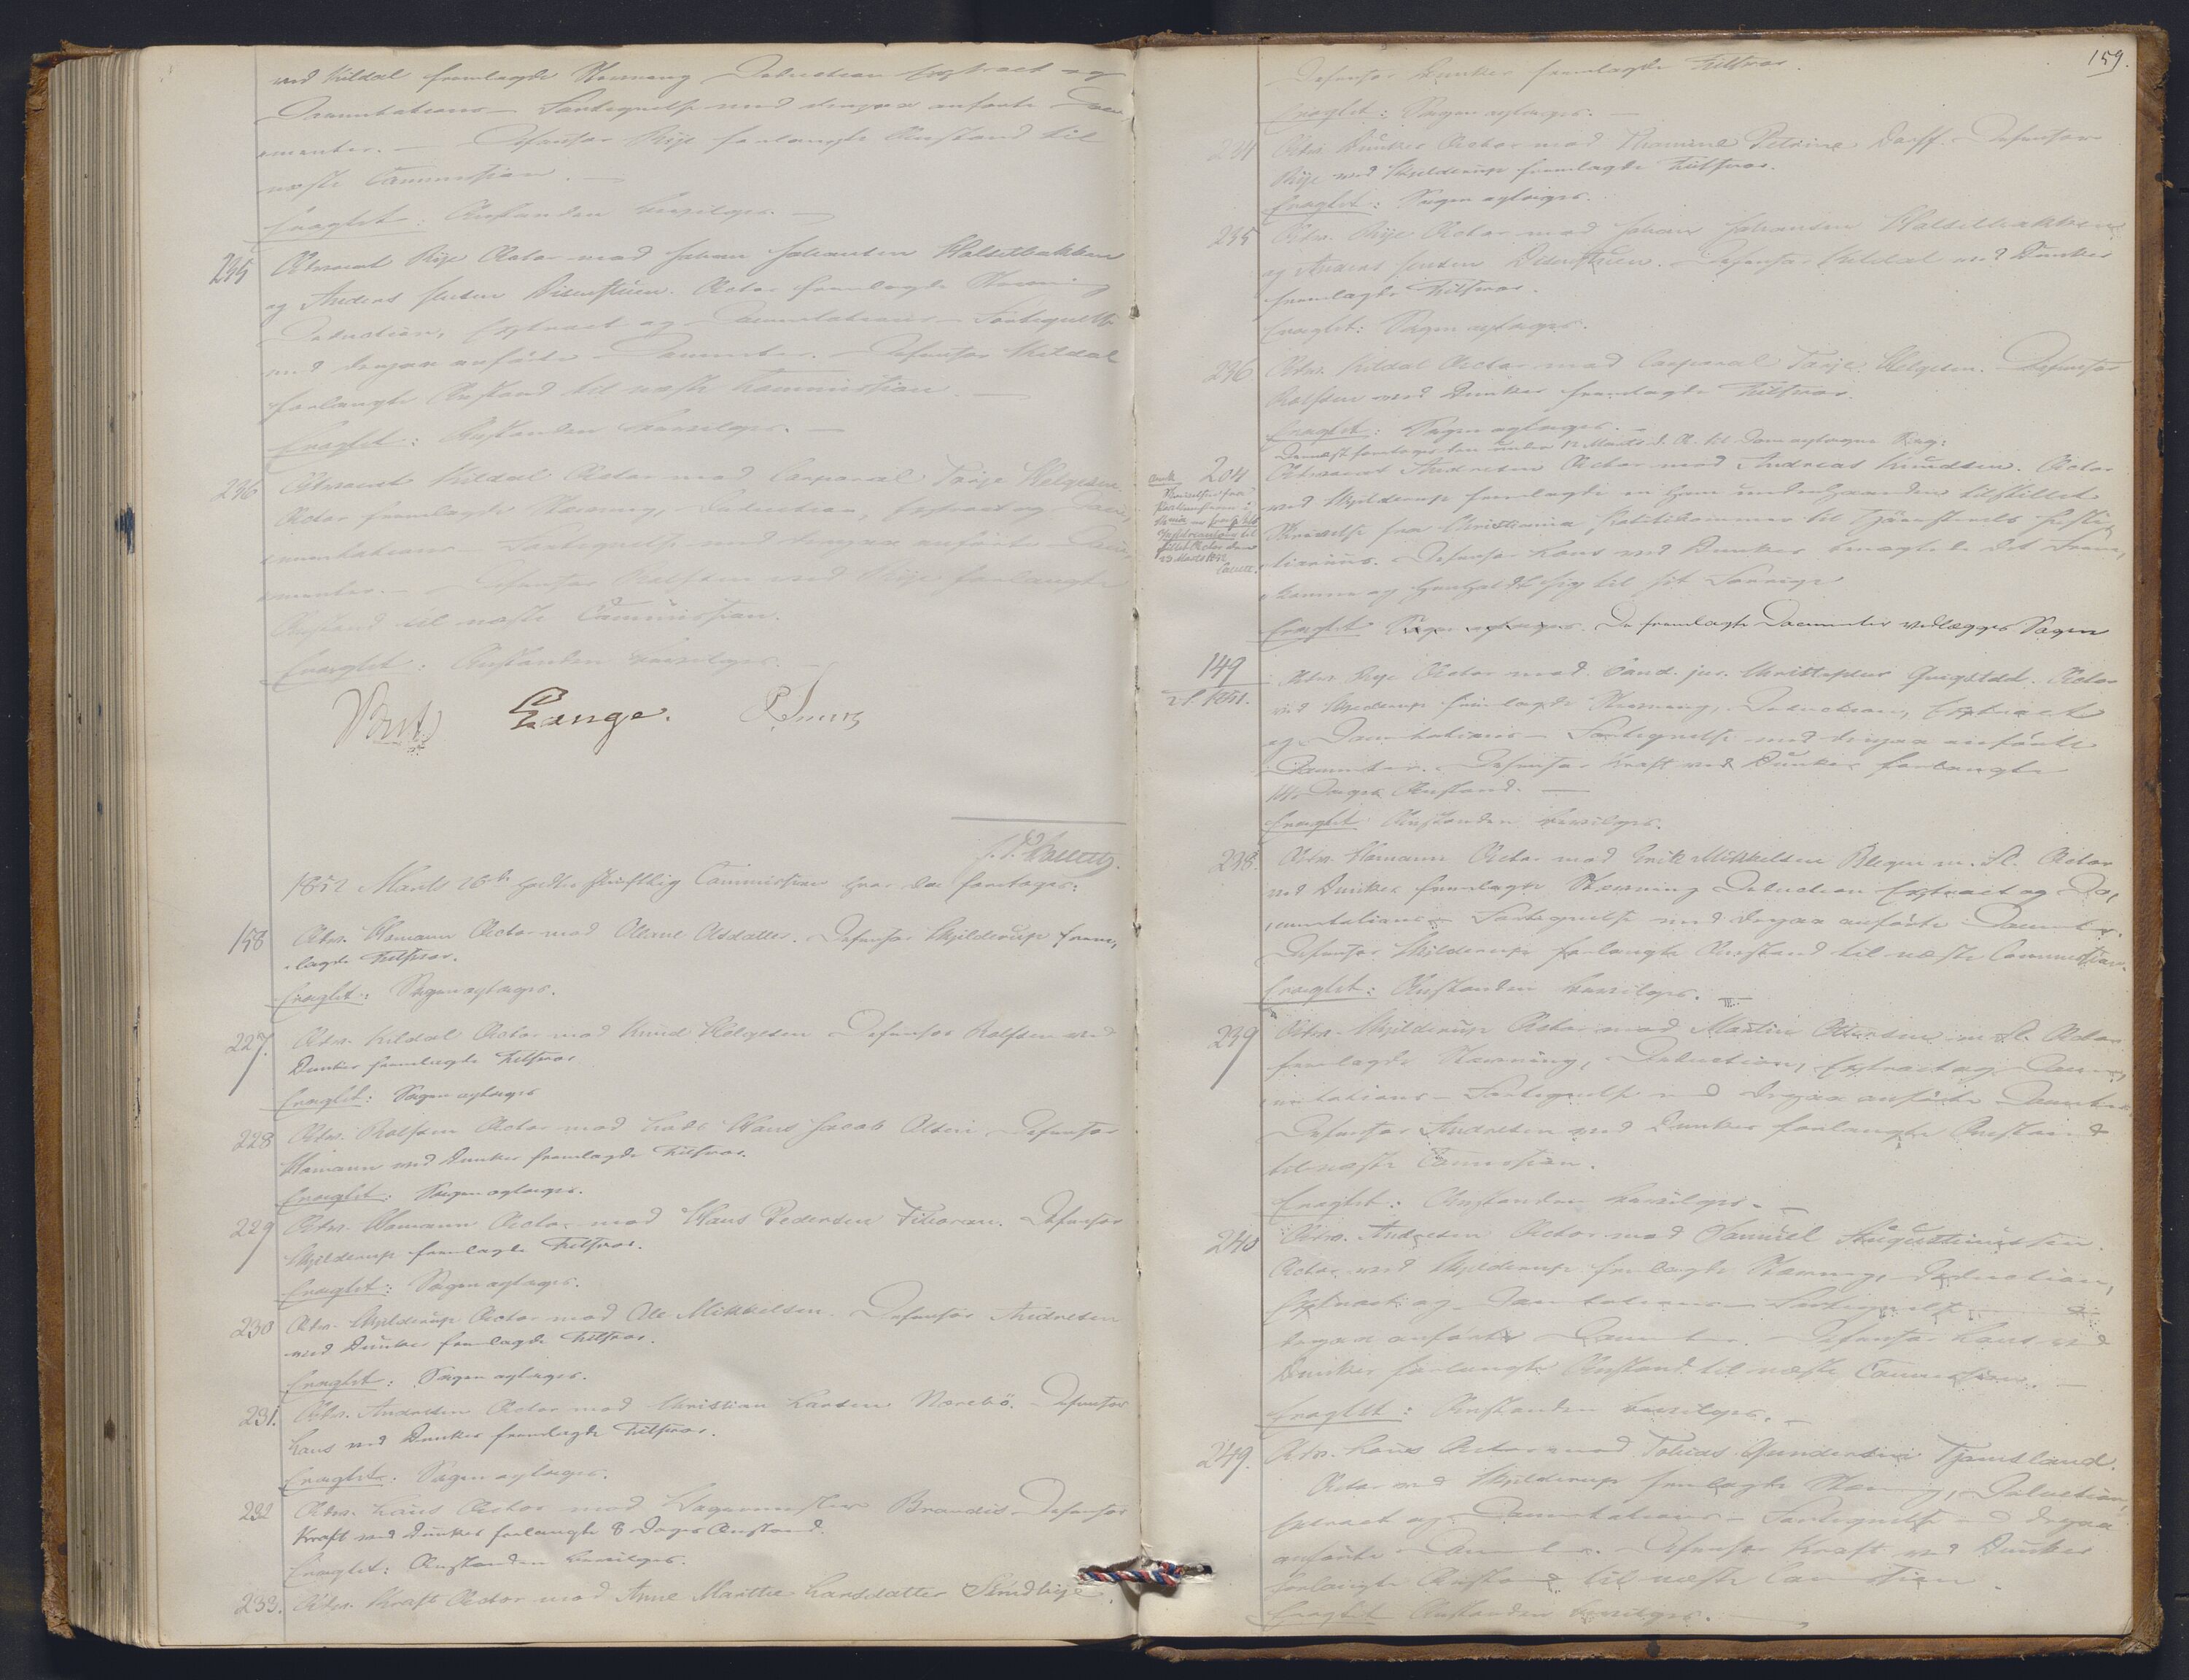 ved Kildal fremlagde Stevning Deduction Extract og
Documentations- Fortegnelse med derpaa anførte Docu
menter. — Defensor Rije forlangte Anstand til
næste Commission. —
Eragtet: Anstanden bevilges. —
235 Advocat Rije Actor mod Johan Johansen Holsetbakken
og Anders Jensen Disenstuen. Actor fremlagde Stevning
Deduction, Extract og Documentations- Fortegnelse
med derpaa anførte Documenter. Defensor Kildal
forlangte Anstand til næste Commission. —
Eragtet: Anstanden bevilges. —
236 Advocat Kildal Actor mod Corporal Tarje Helgesen.
Actor fremlagde Stevning, Deduction, Extract og Docu
mentations- Fortegnelse med derpaa anførte Docu
menter. — Defensor Rolfsen ved Rije forlangte
Anstand til næste Commission.
Eragtet: Anstanden bevilges. —
Lange.
1852 Marts 26de holdtes skriftlig Commission hvor da foretoges:
158 Adv. Homann Actor mod Oleane Olsdatter. Defensor Hjelderup frem
lagde Tilsvar.
Eragtet: Sagen optages.
227. Adv. Kildal Actor mod Knud Helgesen Defensor Rolfsen ved
Dunker fremlagde Tilsvar
Eragtet: Sagen optages
228 Adv. Rolfsen Actor mod Hans Jacob Olsen Defensor
Homann ved Dunker fremlagde Tilsvar.
Eragtet: Sagen optages.
229 Adv. Homann Actor mod Hans Pedersen Defensor
Hjelderup fremlagde Tilsvar.
Eragtet: Sagen optages.
230 Adv. Hjelderup Actor mod Ole Mikkelsen. Defensor Andresen
ved Dunker fremlagde Tilsvar.
Eragtet: Sagen optages.
231. Adv. Andresen Actor mod Christian Larsen Narebö. Defensor
Laus ved Dunker fremlagde Tilsvar.
Eragtet. Sagen optages.
232 Adv. Laus Actor mod Vagnmester Brandis Defensor
Kraft ved Dunker forlangte 8 Dages Anstand.
Eragtet: Anstanden bevilges.
233. Adv. Kraft Actor mod Anne Marthe Larsdatter
159.
Defensor Dunker fremlagde Tilsvar.
Eragtet: Sagen optages. —
234 Adv. Dunker Actor mod Thomine Petrine Dorff. Defensor
Rije ved Hjelderup fremlagde Tilsvar.
Eragtet: Sagen optages.
235 Adv. Rije Actor mod Johan Johansen Holsetbakken
og Anders Jensen Disenstuen. Defensor Kildal ved Dunker
fremlagde Tilsvar.
Eragtet: Sagen optages.
236 Adv. Kildal Actor mod Corporal Tarje Helgesen. Defensor
Rolfsen ved Dunker fremlagde Tilsvar.
Eragtet: Sagen optages.
Dernæst foretoges den under 12 Marts d. A. til Dom optagne Sag:
204 Advocat Andresen Actor mod Andreas Knudsen. Actor
ved Hjelderup fremlagde en ham underhaanden tilstillet
Skrivelse fra Christiania Politikammer til Tjenstens
Defensor Laus ved Dunker benegtede det Frem
komne og henholdt sig til sit Forrige
Eragtet De fremlagte Documenter vedlægges Sagen
149 Adv. Rije Actor mod Cand. jur. Christopher Qvigstad. Actor
1851. ved Hjelderup fremlagde Stevning, Deduction, Extract
og Documentations- Fortegnelse med derpaa anførte
Documenter. Defensor Kraft ved Dunker forlangte
14 Dages Anstand. —
Eragtet Anstanden bevilges.
238. Adv. Homann Actor mod Erik Mikkelsen Blegen m. fl. Actor
ved Dunker fremlagde Stevning Deduction Extract og Do
cumentations- Fortegnelse med derpaa anførte Documenter.
Defensor Hjelderup forlangte Anstand til næste Commission.
Eragtet: Anstanden bevilges.
239 Adv. Hjelderup Actor mod Martin m. fl. Actor
fremlagde Stevning, Deduction, Extract og Docu
mentations- Fortegnelse med derpaa anførte Documenter
Defensor Andresen ved Dunker forlangte Anstand
til næste Commission.
Eragtet: Anstanden bevilges. —
240 Adv. Andresen Actor mod Samuel Augustinussen.
Actor ved Hjelderup fremlagde Stevning, Deduction,
Extract og Documentations- Fortegnelse med
derpaa anførte Documenter. Defensor Laus ved
Dunker forlangte Anstand til næste Commission. —
Eragtet: Anstanden bevilges. —
249. Adv. Laus Actor mod Tobias Gundersen Tjomsland.
Actor ved Hjelderup fremlagde Stevning, Deduction,
Extract og Documentations- Fortegnelse med derpaa
anførte Documenter. Defensor Kraft ved Dunker
forlangte Anstand til næste Commission.
Eragtet Anstanden bevilges. —